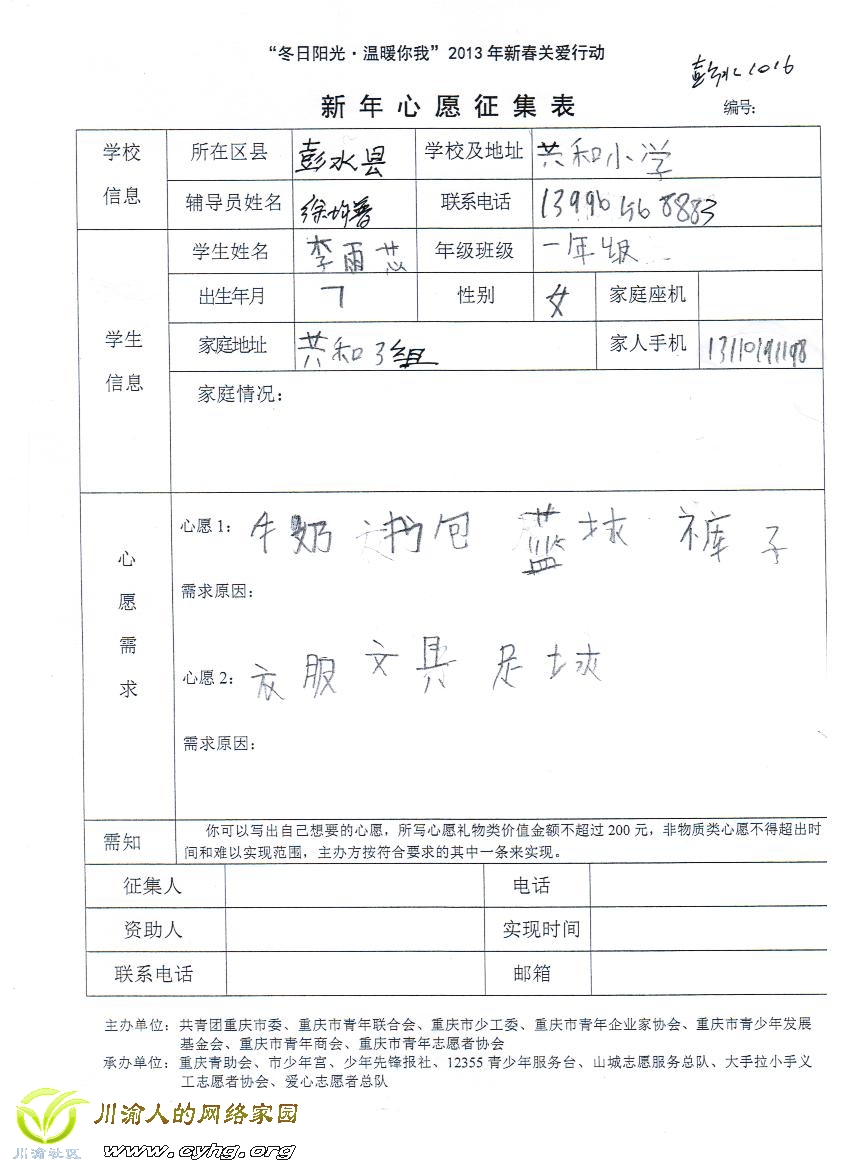 “冬日阳光·温暖你我”2013年新春关爱行动
彭水1016
新年心愿征集表
编号:
学校信息 所在区县 彭水县 学校及地址 共和小学
辅导员姓名 徐 联系电话 139965 68883
学生信息 学生姓名 李雨芯 年级班级 一年级
出生年月 7 性别 女 家庭座机
家庭地址 共和3组 家人手机 13110191198
家庭情况：
心愿需求
心愿1： 牛奶 书包 蓝球 裤子
需求原因：
心愿2： 衣服 文具 足球
需求原因：
需知 你可以写出自己想要的心愿，所写心愿礼物类价值金额不超过200元，非物质类心愿不得超出时
间和难以实现范围，主办方按符合要求的其中一条来实现。
征集人 电话
资助人 实现时间
联系电话 邮箱
主办单位：共青团重庆市委、重庆市青年联合会、重庆市少工委、重庆市青年企业家协会、重庆市青少年发展
基金会、重庆市青年商会、重庆市青年志愿者协会
承办单位：重庆青助会、市少年宫、少年先锋报社、12355青少年服务台、山城志愿服务总队、大手拉小手义
工志愿者协会、爱心志愿者总队
川渝人的网络家园
川渝社区 www.cyhg.org